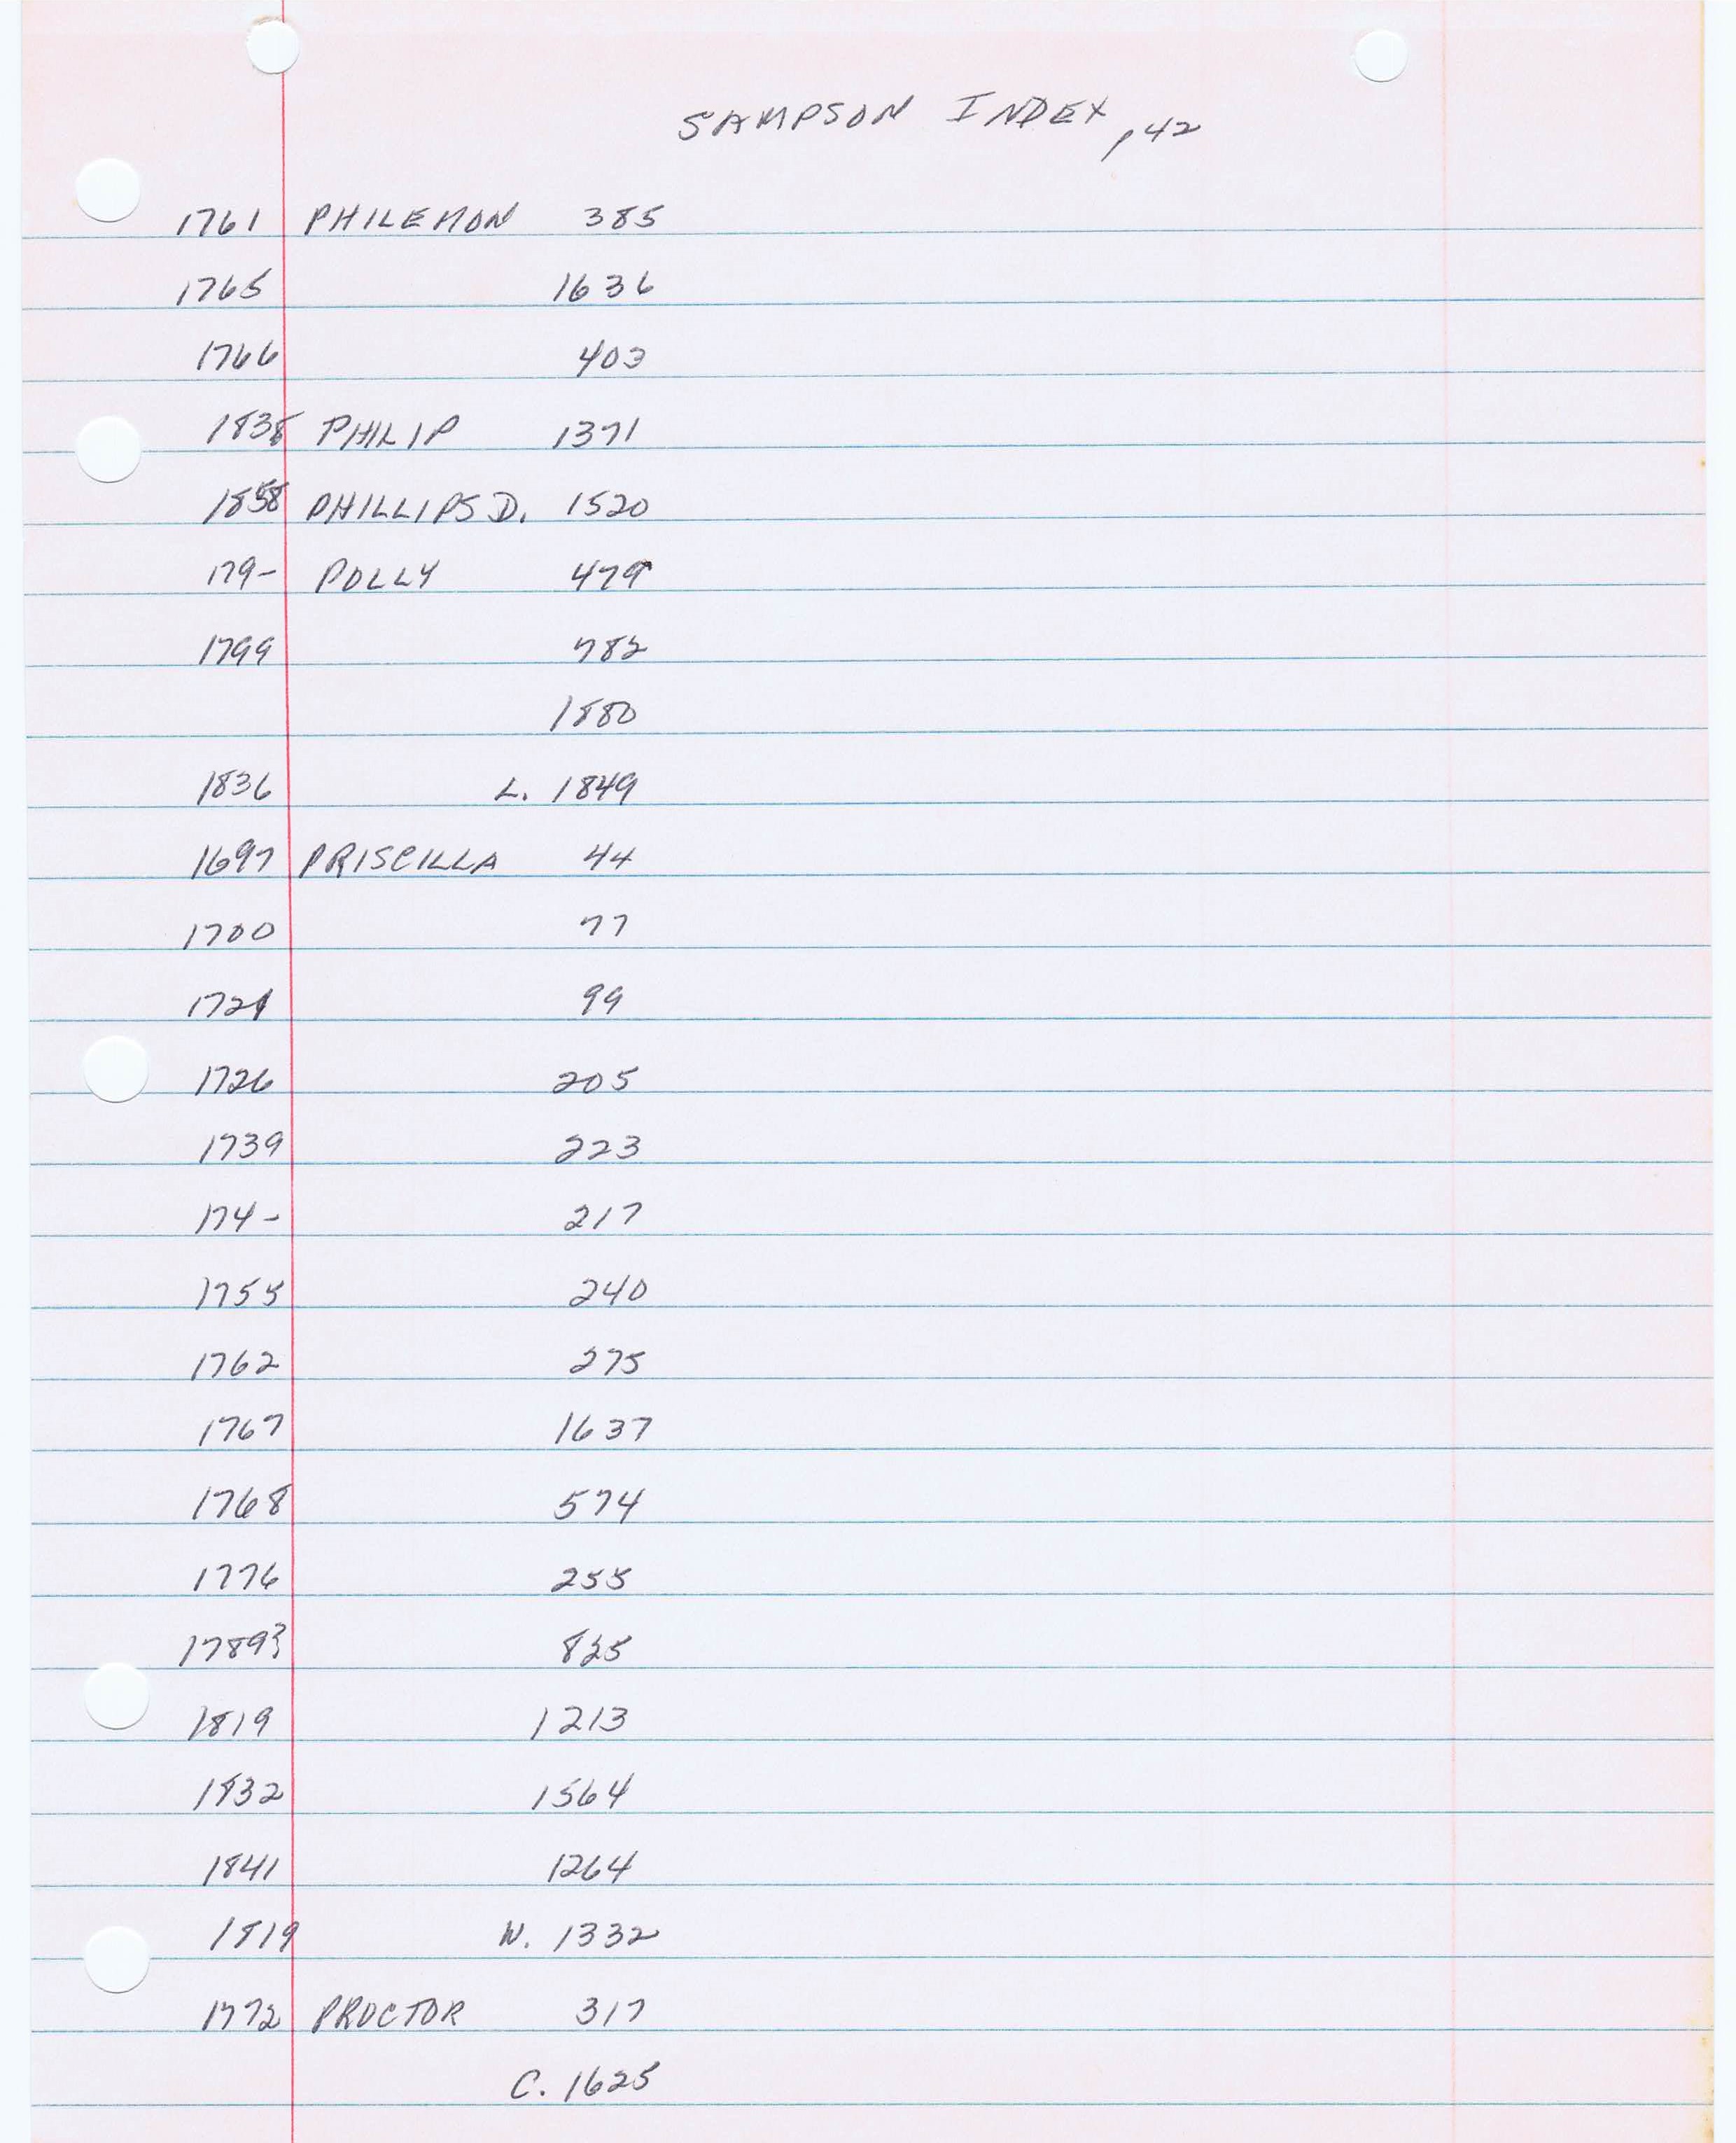 SAMPSON INDEX, 42
1761 PHILEMON 385
1765 1636
1766 403
1838 PHILIP 1371
1858 PHILLIPS D. 1520
179- POLLY 479
1799 782
1880
1836 L. 1849
1697 PRISCILLA 44
1700 77
1721 99
1726 205
1739 223
174- 217
1755 240
1762 275
1767 1637
1768 574
1776 255
1789? 825
1819 1213
1832 1564
1841 1264
1819 W. 1332
1772 PROCTOR 317
C. 1625